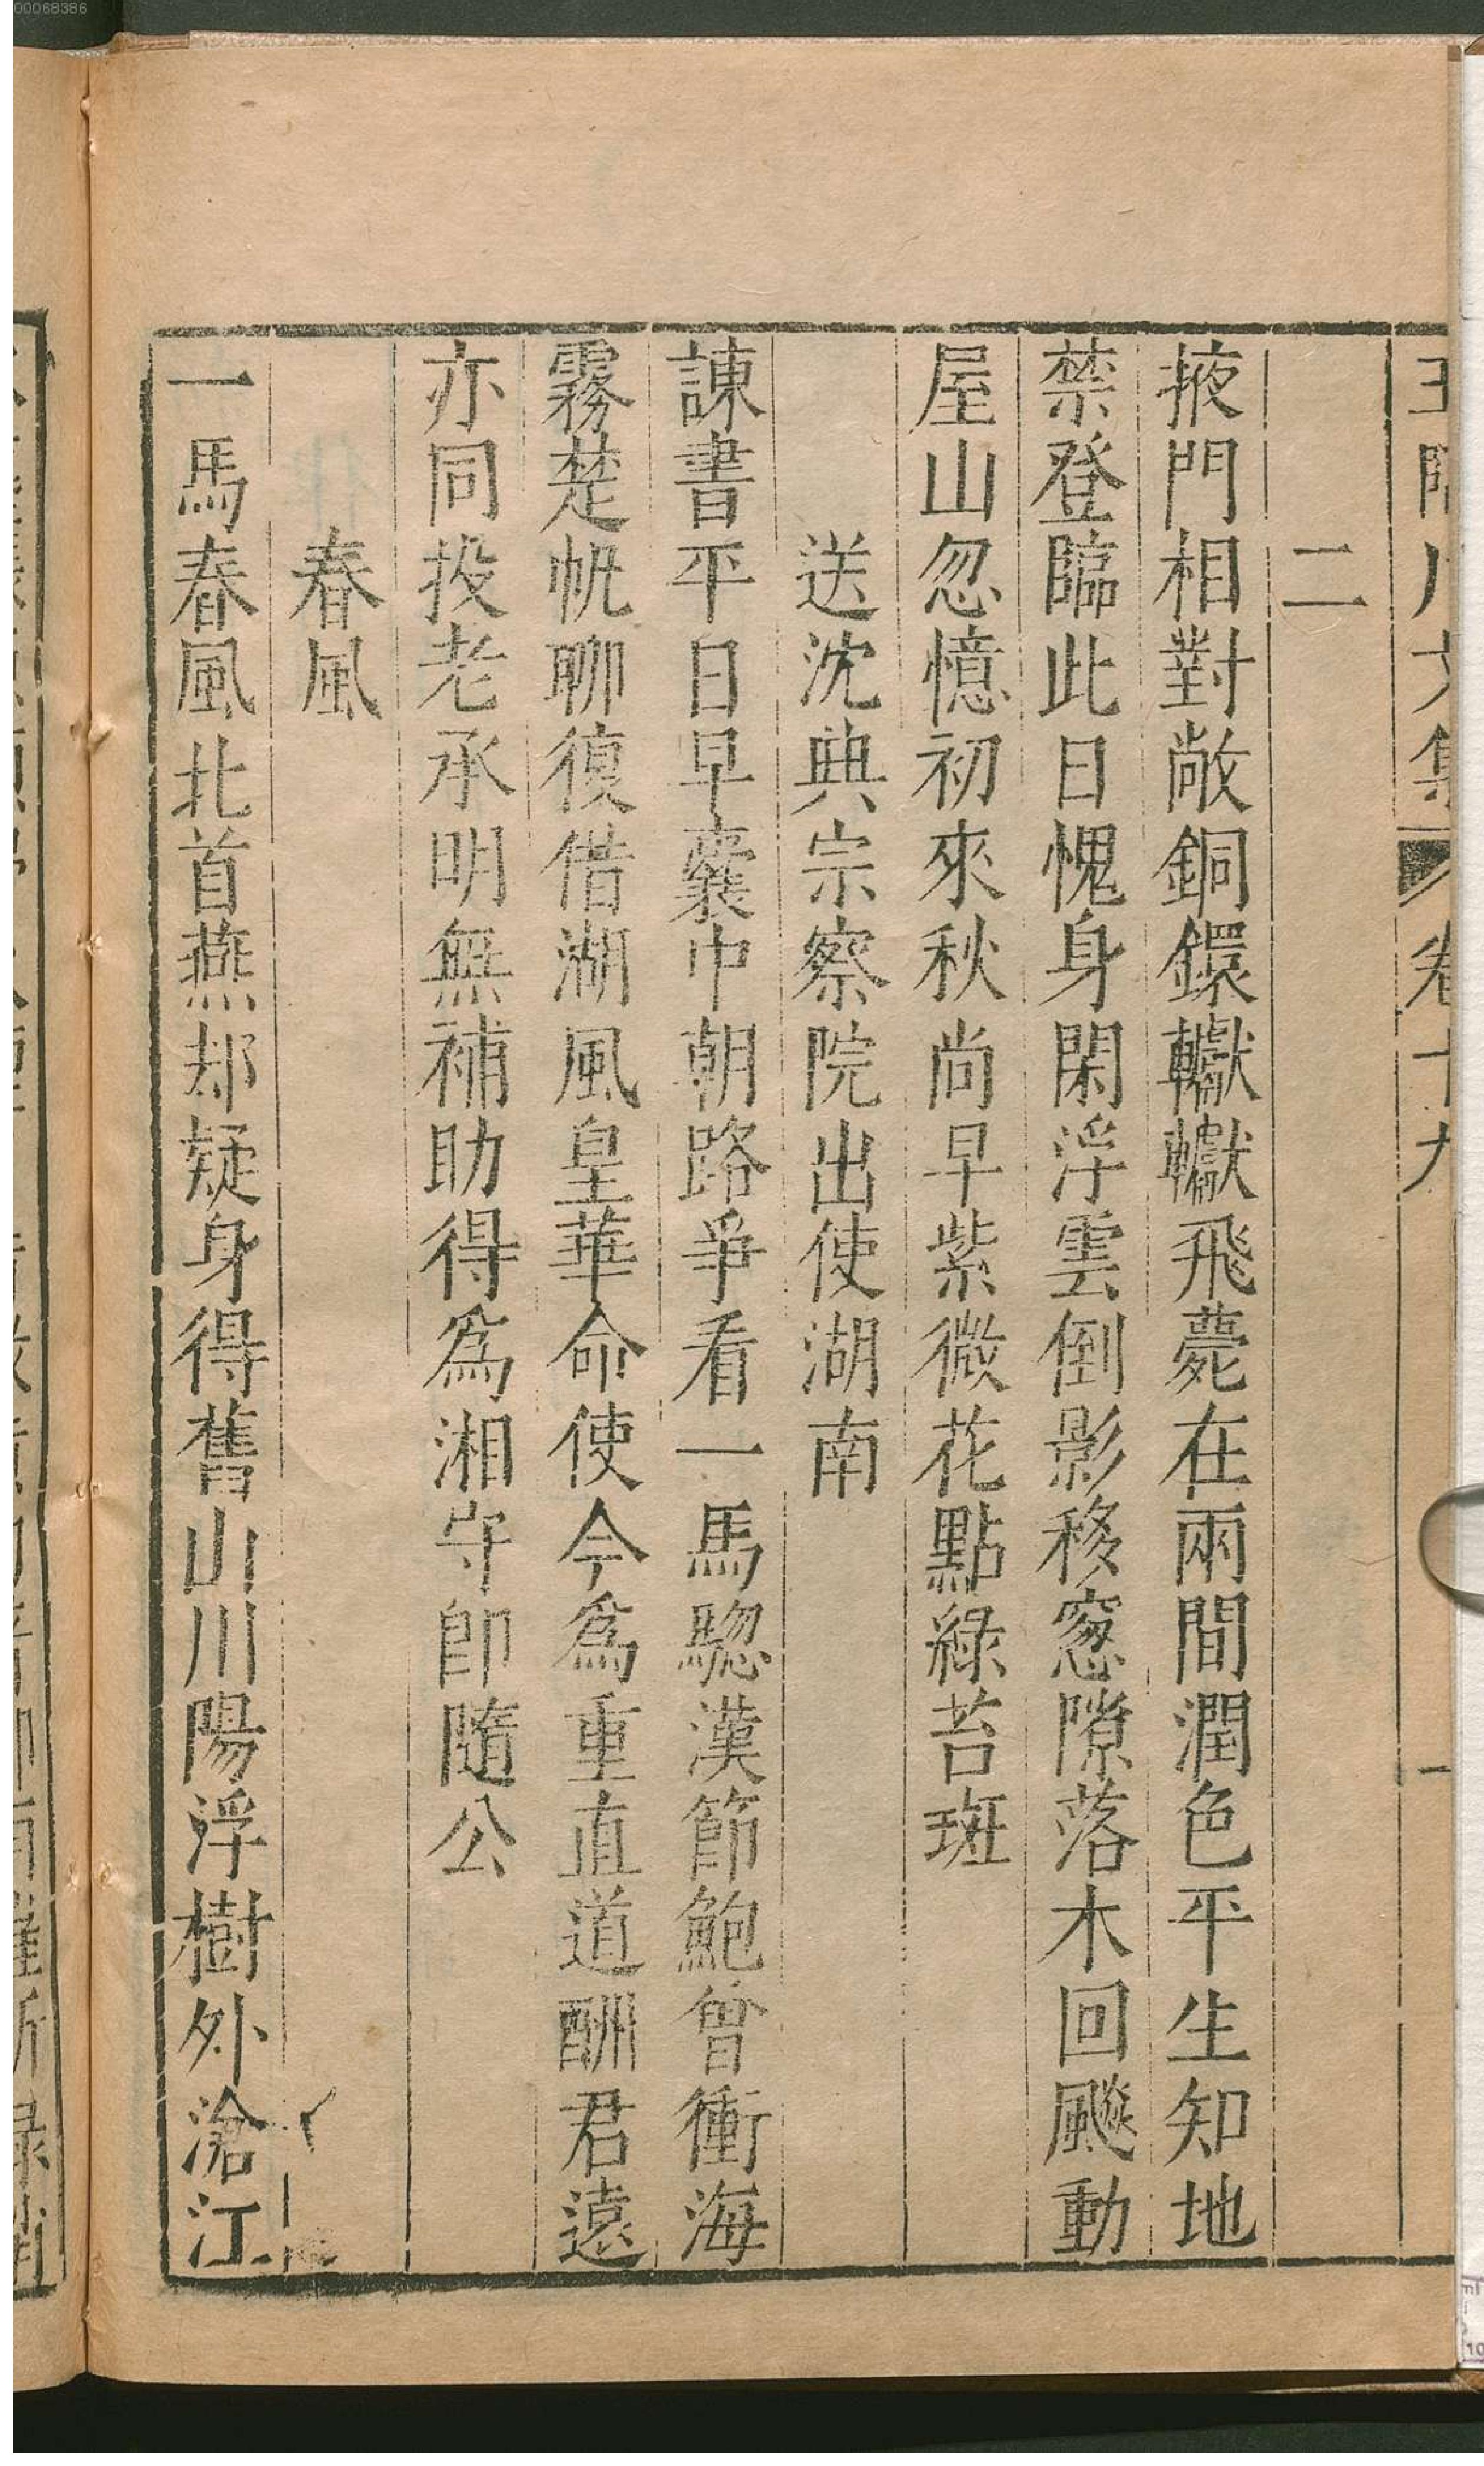 00068386
二
掖門相對敞銅鐶轣轣飛甍在兩間潤色平生知地
禁登臨此日愧身閑浮雲倒影移窓隙落木回飈動
屋山忽憶初來秋尚早紫微花點緑苔斑
送沈興宗察院出使湖南
諫書平日早囊中朝路爭看一馬驄漢節飽曾衝海
霧楚帆聊復借湖風皇華命使今為重直道酬君遠
亦同投老承明無補助得為湘守卽隨公
春風
一馬春風北首燕却疑身得舊山川陽浮樹外滄江